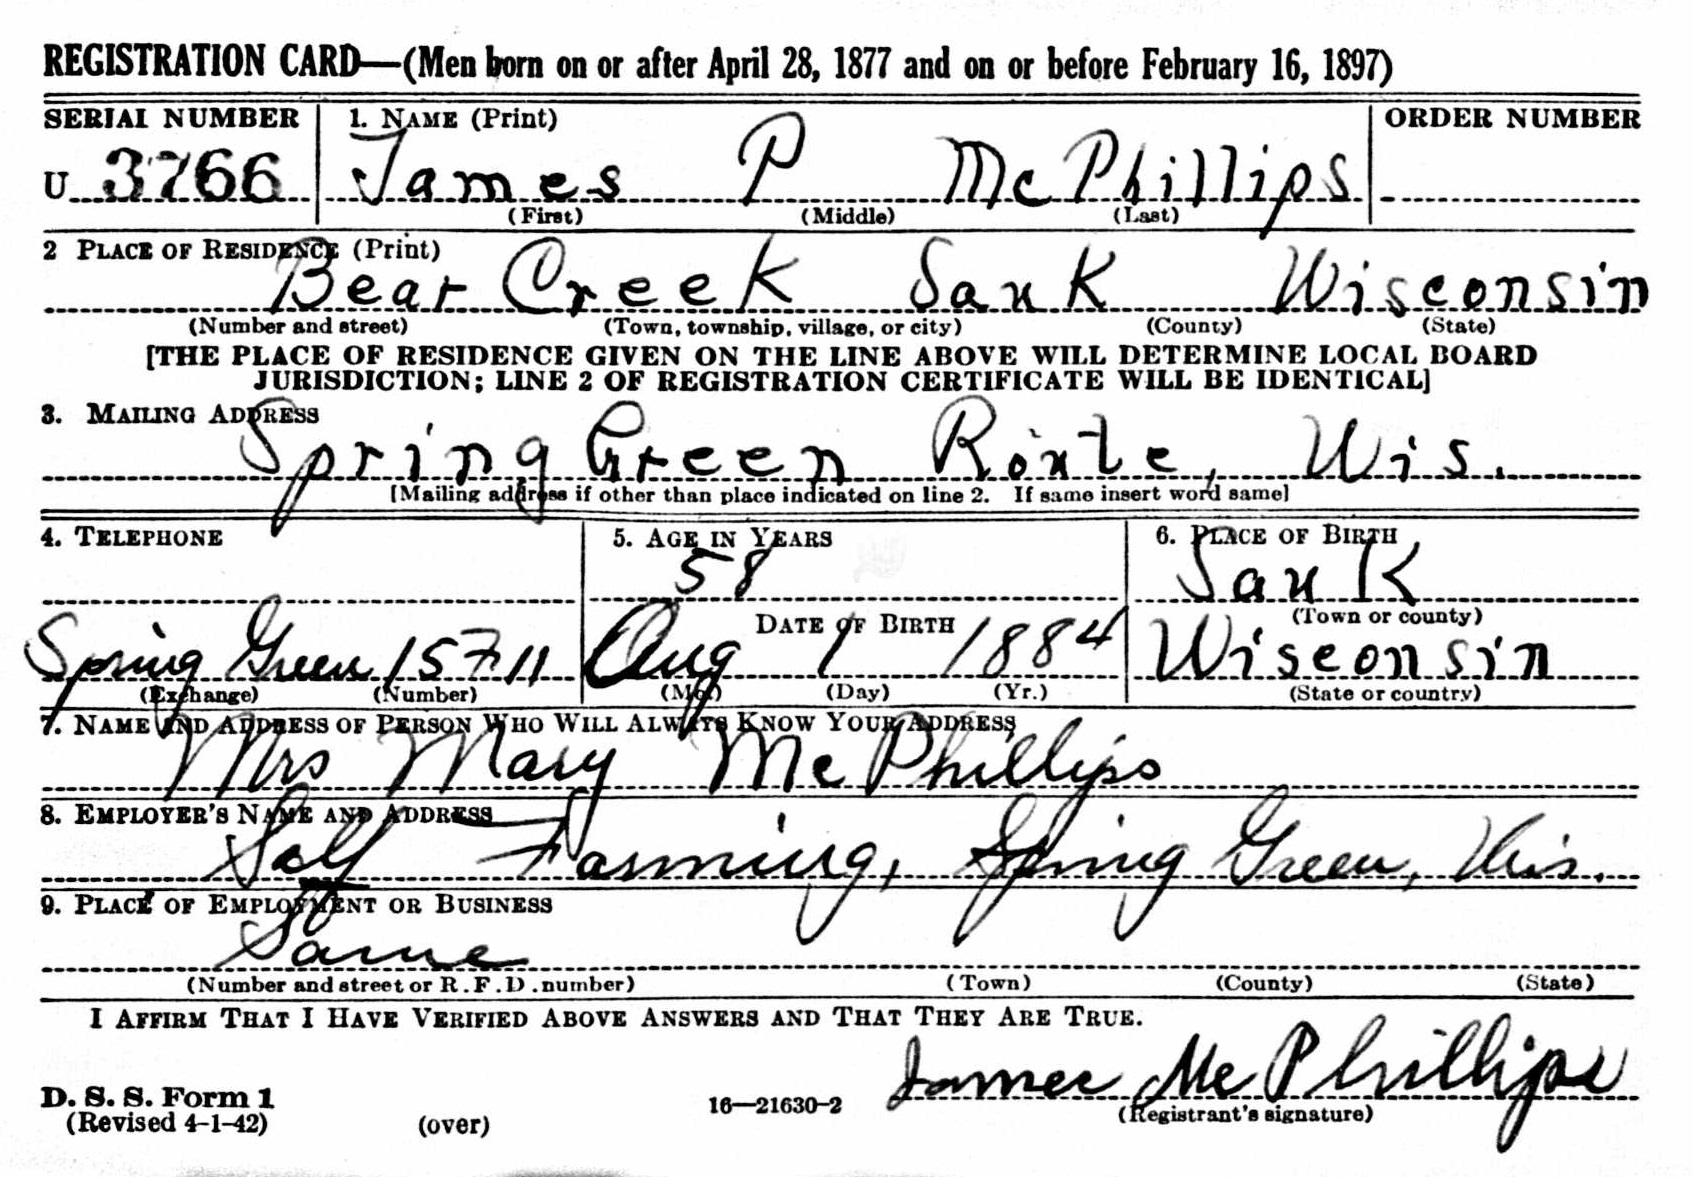 REGISTRATION CARD—(Men born on or after April 28, 1877 and on or before February 16, 1897)
SERIAL NUMBER 1. NAME (Print) ORDER NUMBER
U 3766 James P McPhillips
(First) (Middle) (Last)
2 PLACE OF RESIDENCE (Print)
Bear Creek Sauk Wisconsin
(Number and street) (Town, township, village, or city) (County) (State)
[THE PLACE OF RESIDENCE GIVEN ON THE LINE ABOVE WILL DETERMINE LOCAL BOARD
JURISDICTION; LINE 2 OF REGISTRATION CERTIFICATE WILL BE IDENTICAL]
3. MAILING ADDRESS
Spring Green Route, Wis.
[Mailing address if other than place indicated on line 2. If same insert word same]
4. TELEPHONE 5. AGE IN YEARS 6. PLACE OF BIRTH
58 Sauk
DATE OF BIRTH (Town or county)
Spring Green 15F11 Aug 1 1884 Wisconsin
(Exchange) (Number) (Mo.) (Day) (Yr.) (State or country)
7. NAME AND ADDRESS OF PERSON WHO WILL ALWAYS KNOW YOUR ADDRESS
Mrs Mary McPhillips
8. EMPLOYER'S NAME AND ADDRESS
Self Farming, Spring Green, Wis.
9. PLACE OF EMPLOYMENT OR BUSINESS
Same
(Number and street or R.F.D. number) (Town) (County) (State)
I AFFIRM THAT I HAVE VERIFIED ABOVE ANSWERS AND THAT THEY ARE TRUE.
James McPhillips
D. S. S. Form 1
(Revised 4-1-42) (over) 16—21630-2 (Registrant's signature)